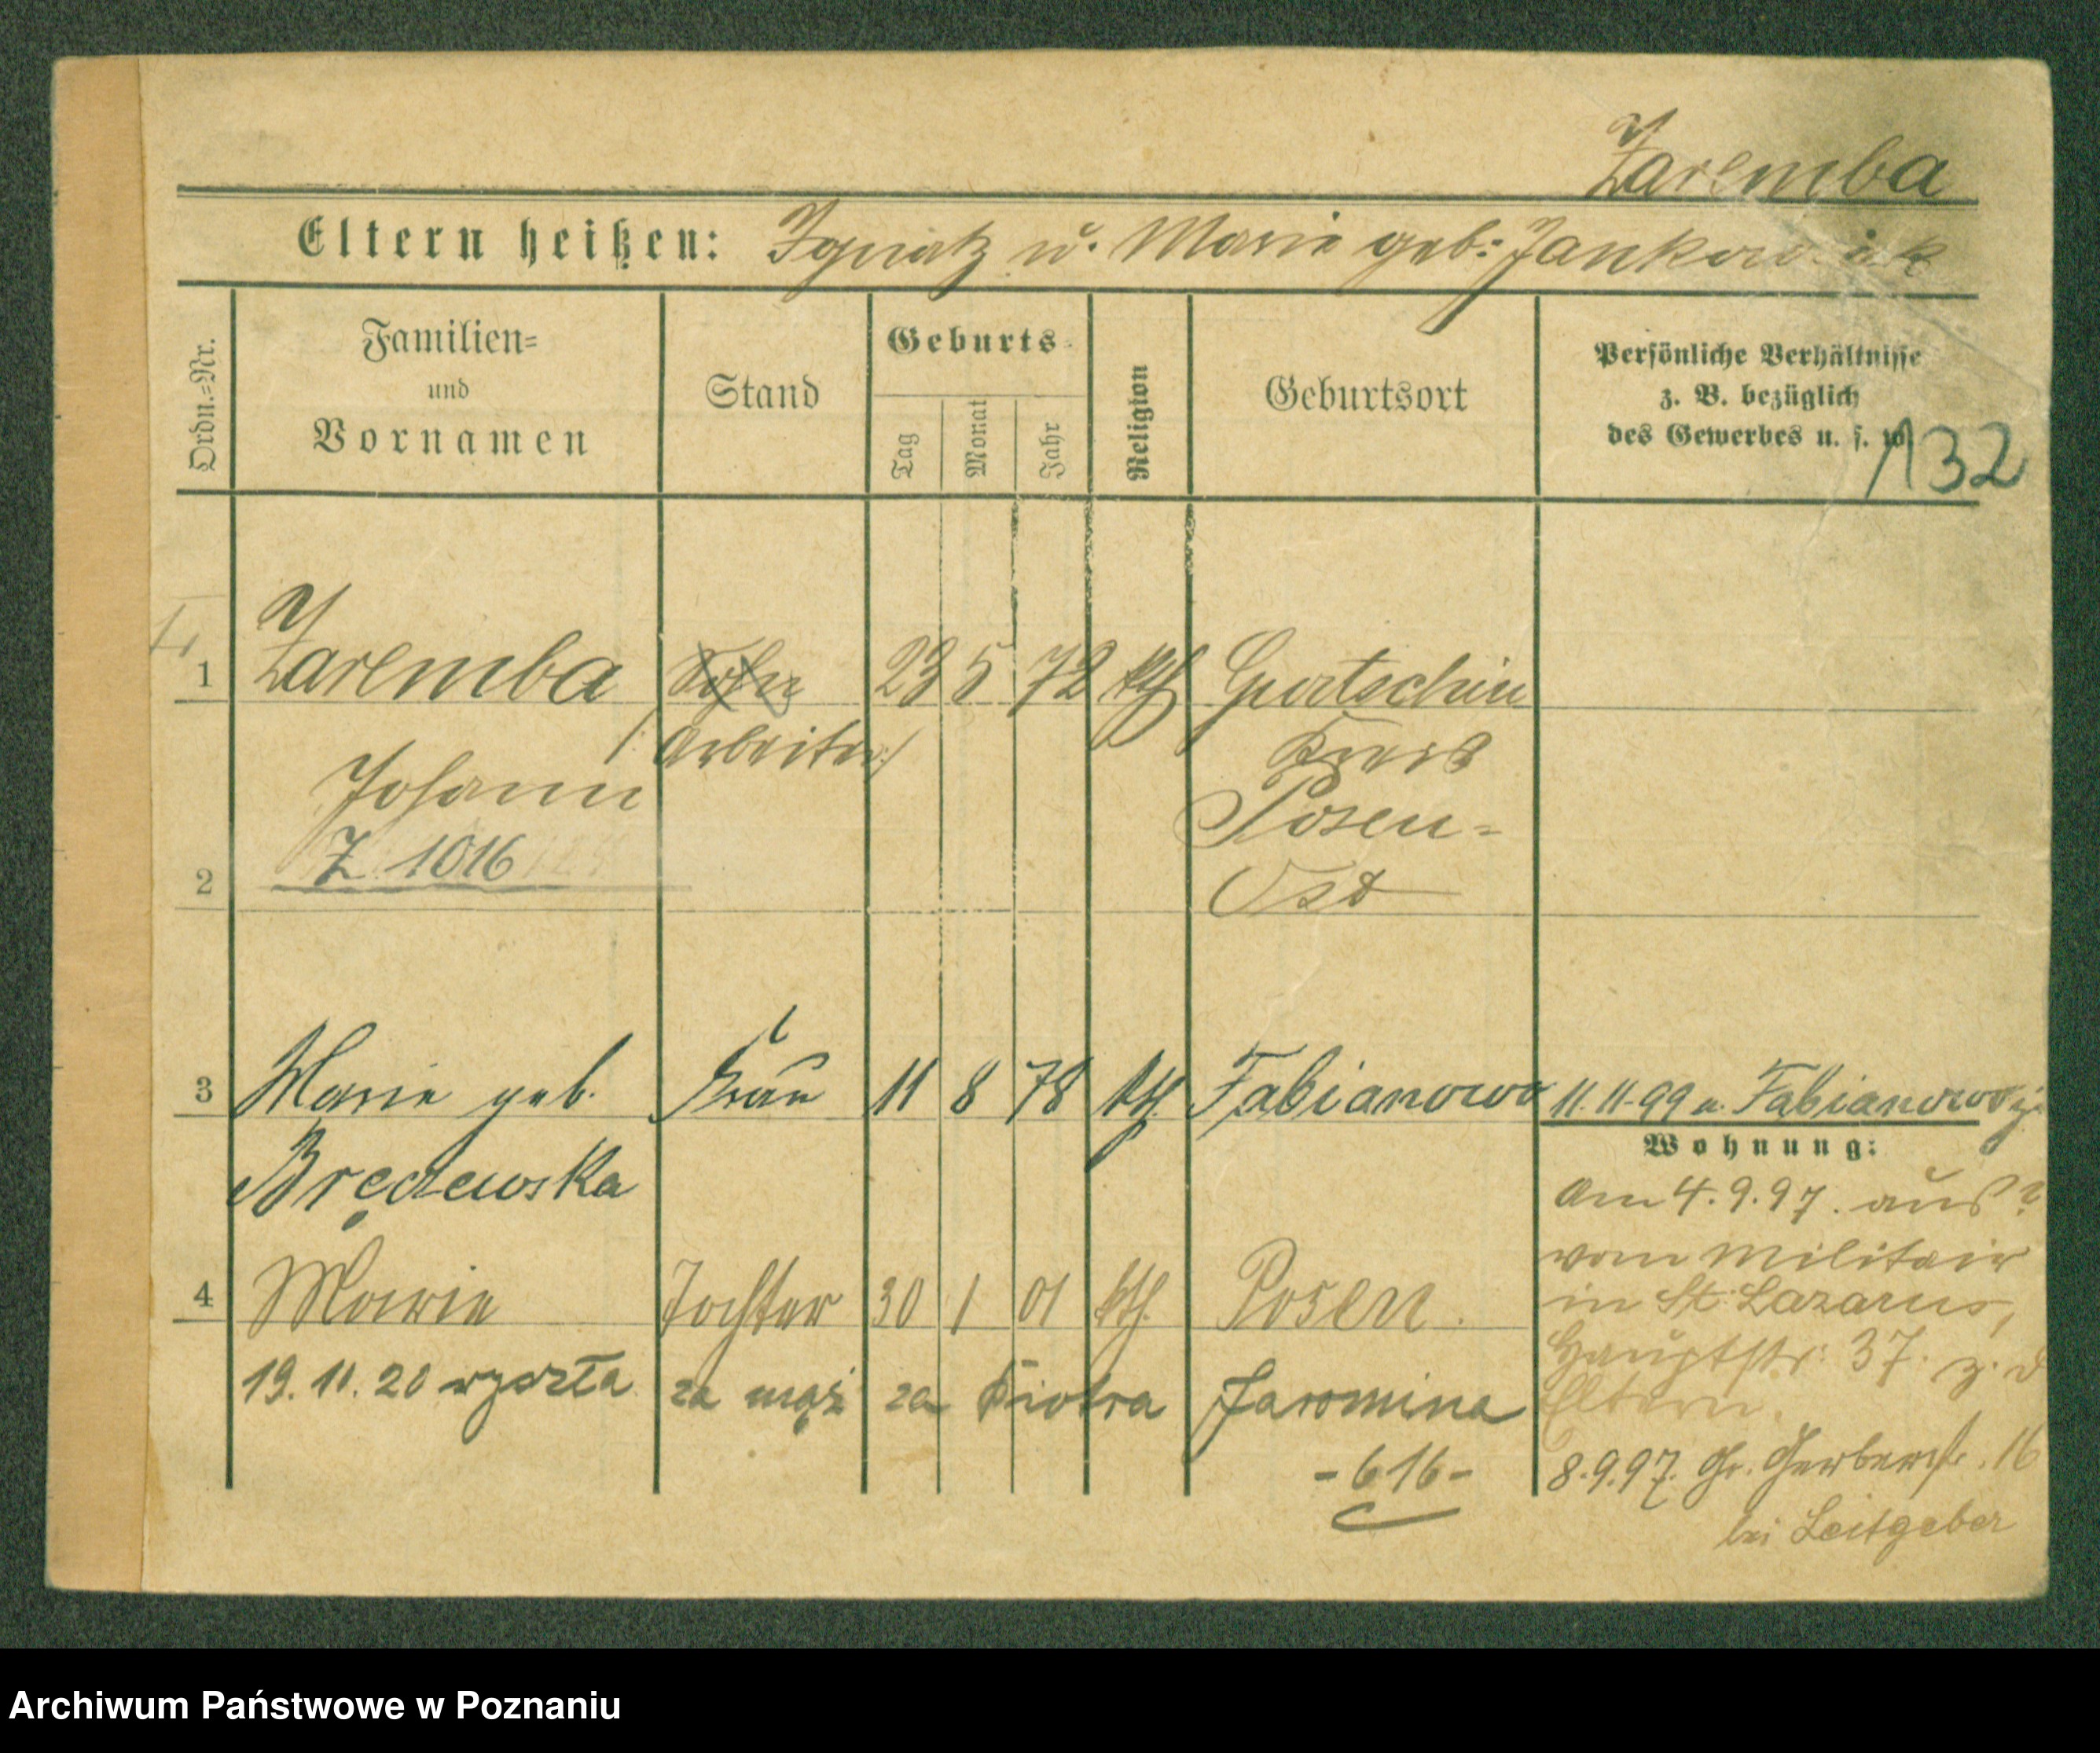 Zaremba
Eltern heißen: Ignatz u. Marie geb: Jankowiak
Ordn.=Nr.
Familien=
und
Vornamen
Stand
Geburts=
Tag
Monat
Jahr
Religion
Geburtsort
Persönliche Verhältnisse
z. B. bezüglich
des Gewerbes u. s. w.
132
1 Zaremba Sohn 23 5 72 kth Gurtschin
/: Arbeiter :/ Kreis
Johann Posen=
2 Z 1016 Ost
3 Marie geb. Frau 11 8 78 kth. Fabianowo 11.11.99 a. Fabianowo z.
Wohnung:
Am 4.9.97. aus?
vom Militair
in St. Lazarus,
Hauptstr: 37. z. d
Eltern.
8.9.97. Gr. Gerberstr. 16
bei Leitgeber
4 Marie Tochter 30 1 01 kth. Posen.
19.11.20 wyszła za mąż za Piotra Jaromina
-616-
Archiwum Państwowe w Poznaniu